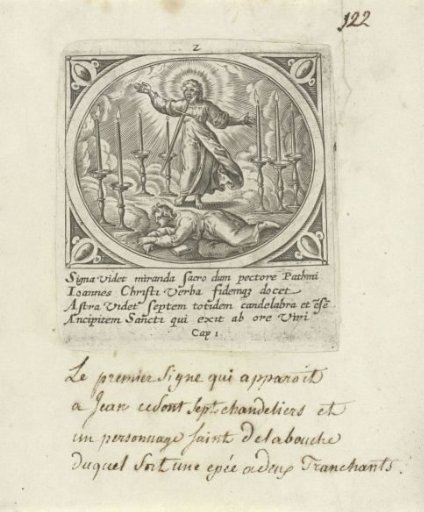 122
2
Signa Videt miranda sacro dum pectore Pathmi
Ioannes Christi Verba fidemqz docet
Astra Videt septem totidem candelabra et ēsē
Ancipitem Sancti qui exit ab ore Viri
Cap 1
Le premier Signe qui apparoit
a Jean ce sont sept chandeliers et
un personnage saint de la bouche
duquel sort une epée a deux Tranchants.